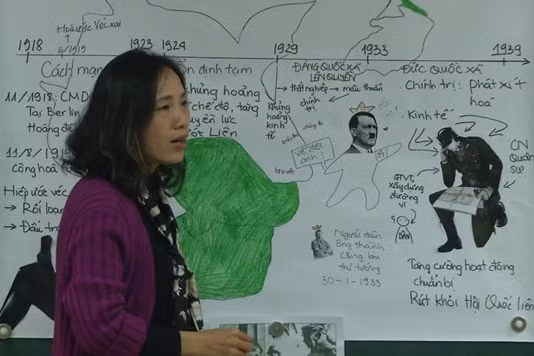 Hoà ước Véc xai
6/1919
1918 1923 1924 1929 1933 1939
Cách mạn
ổn định tạm
ĐẢNG QUỐC XÃ
LÊN QUYỀN
→ thất nghiệp → mâu thuẫn
chính trị
ĐỨC QUỐC XÃ
Chính trị: phát xít
hoá
Kinh tế
11/1918: CMD
Tại Berlin
Hoàng đế
11/8/19
Cộng hoà
Hiệp ước véc
→ Rối loạn
→ Đấu tr
khủng hoảng
chế độ, tăng
quyền lực
Quốc Liên
khủng
hoảng
kinh
tế
GTVT,
xây dựng
đường
DÂN
CN
Quân
sự
Người dân
ủng
làm
thủ tướng
30-1-1933
Tăng cường hoạt động
chuẩn bị
Rút khỏi Hội Quốc liên